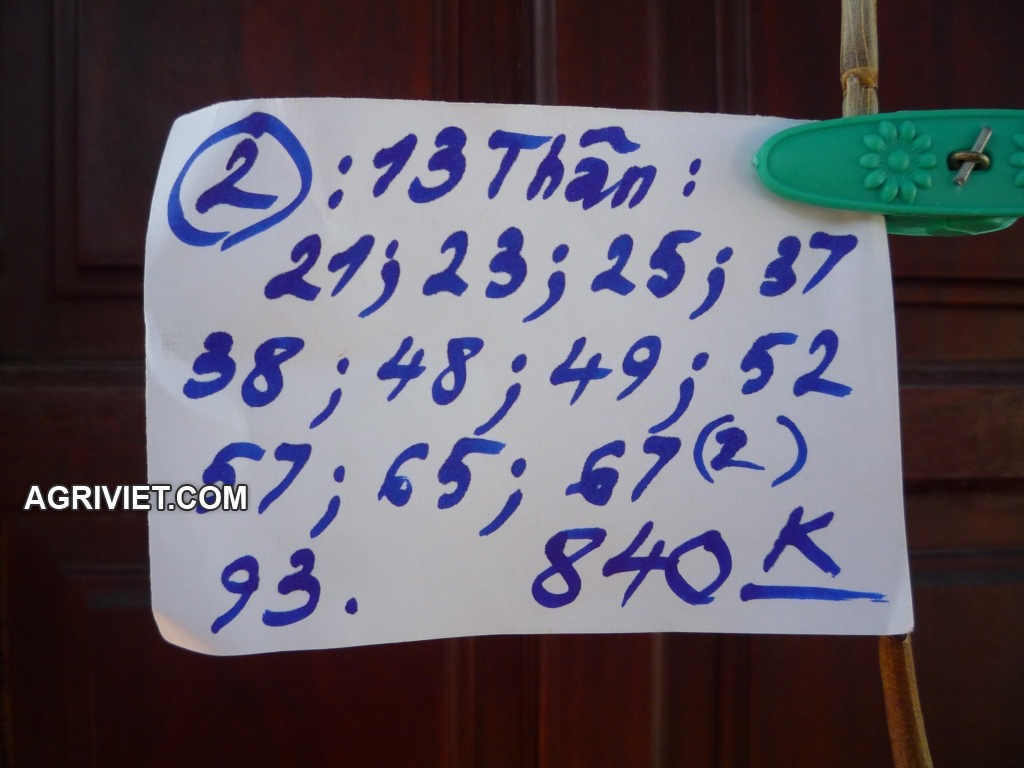 2 : 13 Thân :
21; 23; 25; 37
38; 48; 49; 52
57; 65; 67 (2)
AGRIVIET.COM
93. 840 K